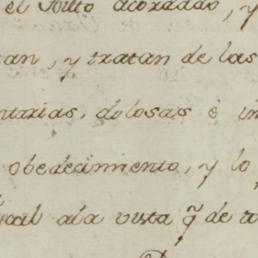 el Auto acordado, y
tan, y tratan de las
ntarias, dolosas è in
obedecimiento, y lo
cal ala vista q̃ de